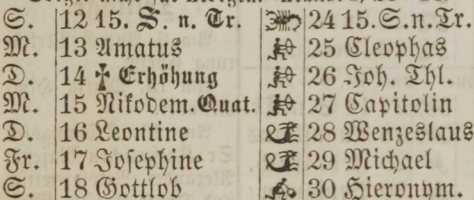 S. 12 15. S. n. Tr. 24 15. S. n. Tr.
M. 13 Amatus 25 Cleophas
D. 14 ✝ Erhöhung 26 Joh. Thl.
M. 15 Nikodem. Quat. 27 Capitolin
D. 16 Leontine 28 Wenzeslaus
Fr. 17 Josephine 29 Michael
S. 18 Gottlob 30 Hieronym.